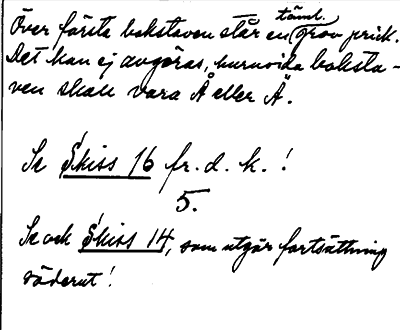 Över första bokstaven står en täml. grov prick.
Det kan ej avgöras, huruvida boksta-
ven skall vara Å eller Ä.
Se Skiss 16 fr. d. k. !
5.
Se och Skiss 14, som utgör fortsättning
söderut!